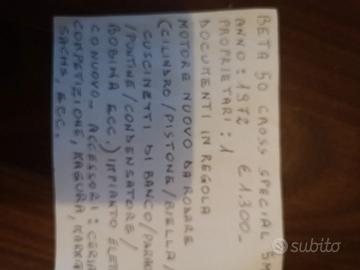 BETA 50 CROSS SPECIAL 5M
ANNO: 1972 € 1.300-
PROPRIETARI: 1
DOCUMENTI IN REGOLA
MOTORE NUOVO DA RODARE
(CILINDRO/PISTONE/BIELLA/
CUSCINETTI DI BANCO/PARA
/PUNTINE/CONDENSATORE/
BOBINA ECC.) IMPIANTO ELET
CO NUOVO - ACCESSORI: CERIA
COMPETIZIONE, MAGURA,
SACHS, ECC.
subito